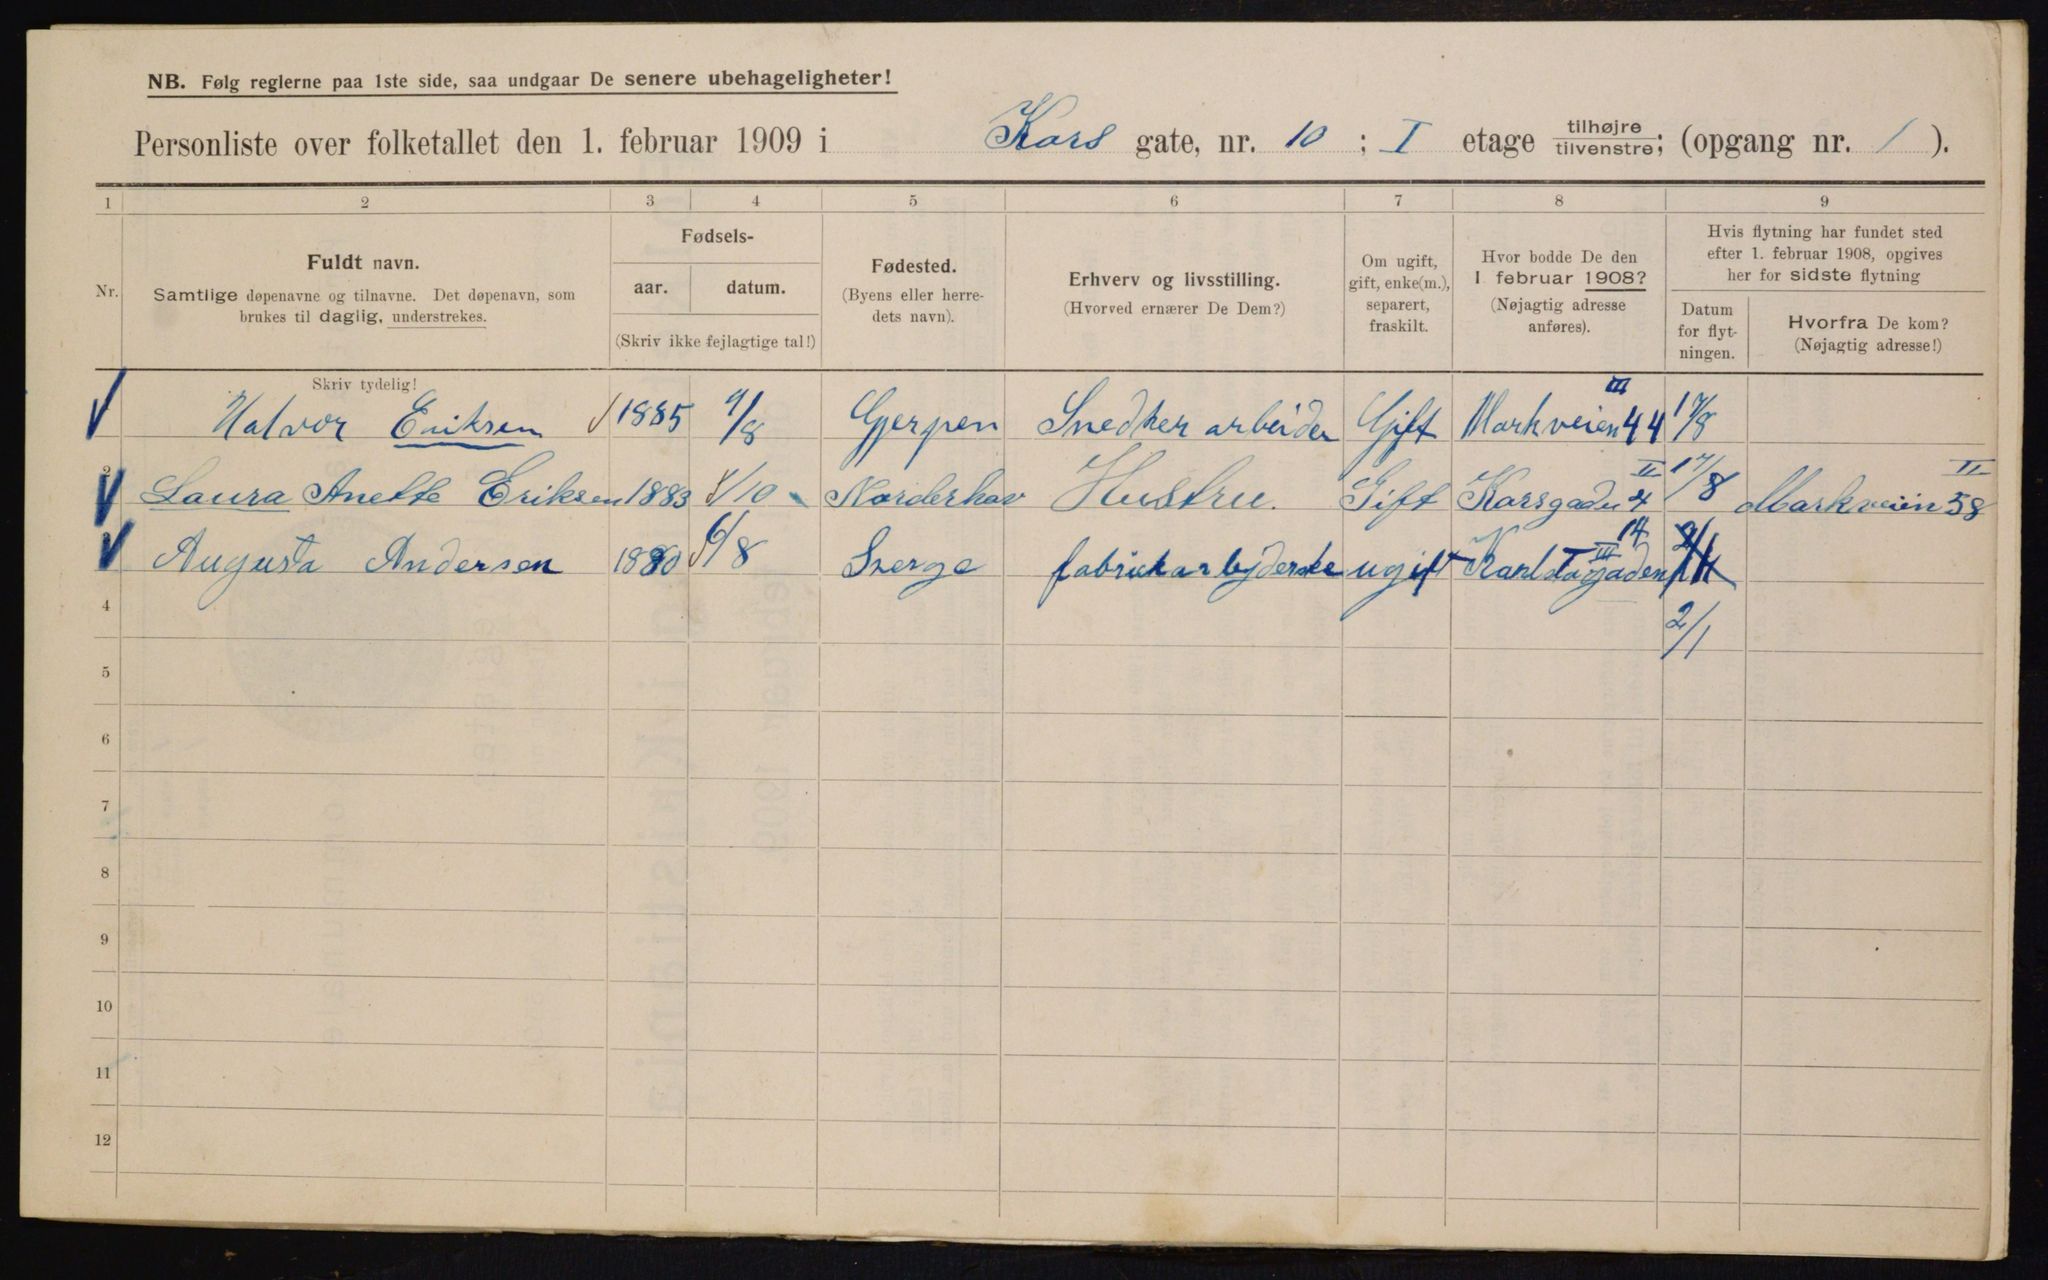 NB. Følg reglerne paa 1ste side, saa undgaar De senere ubehageligheter!
Personliste over folketallet den 1. februar 1909 i Kors gate, nr. 10 ; I etage tilhøjre tilvenstre; (opgang nr. 1 ).
1 2 3 4 5 6 7 8 9
Nr.
Fuldt navn.
Samtlige døpenavne og tilnavne. Det døpenavn, som
brukes til daglig, understrekes.
Skriv tydelig!
Fødsels-
aar. datum.
(Skriv ikke fejlagtige tal!)
Fødested.
(Byens eller herre-
dets navn).
Erhverv og livsstilling.
(Hvorved ernærer De Dem?)
Om ugift,
gift, enke(m.),
separert,
fraskilt.
Hvor bodde De den
1 februar 1908?
(Nøjagtig adresse
anføres).
Hvis flytning har fundet sted
efter 1. februar 1908, opgives
her for sidste flytning
Datum
for flyt-
ningen.
Hvorfra De kom?
(Nøjagtig adresse!)
Halvor Eriksen 1885 /8 Gjerpen Snedker arbeider Gift Markveien 44 III 17/8
2 Laura Anette Eriksen 1883 /10 Norderhov Hustru. Gift Korsgaden 4 II 17/8 Markveien 58 II
Augusta Andersen 1880 6/8 Sverge fabrikarbejderske ugift Karlstagaden 14 III
4 2/1
5
6
7
8
9
10
11
12